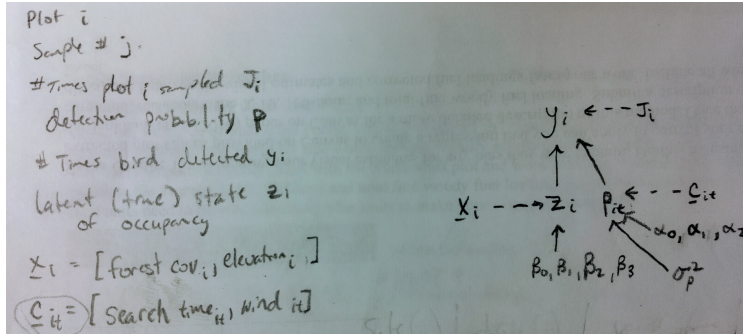 Plot i
Sample # j.
# Times plot i sampled Jᵢ
detection probability p
# Times bird detected yᵢ
latent (true) state zᵢ
of occupancy
x̲ᵢ = [forest cov.ᵢ, elevationᵢ]
c̲ᵢₜ = [search timeᵢₜ, wind ᵢₜ]
yᵢ ← - - - Jᵢ
x̲ᵢ - - - → zᵢ
pᵢₜ ← - - - c̲ᵢₜ
α₀, α₁, α₂
β₀, β₁, β₂, β₃
σₚ²